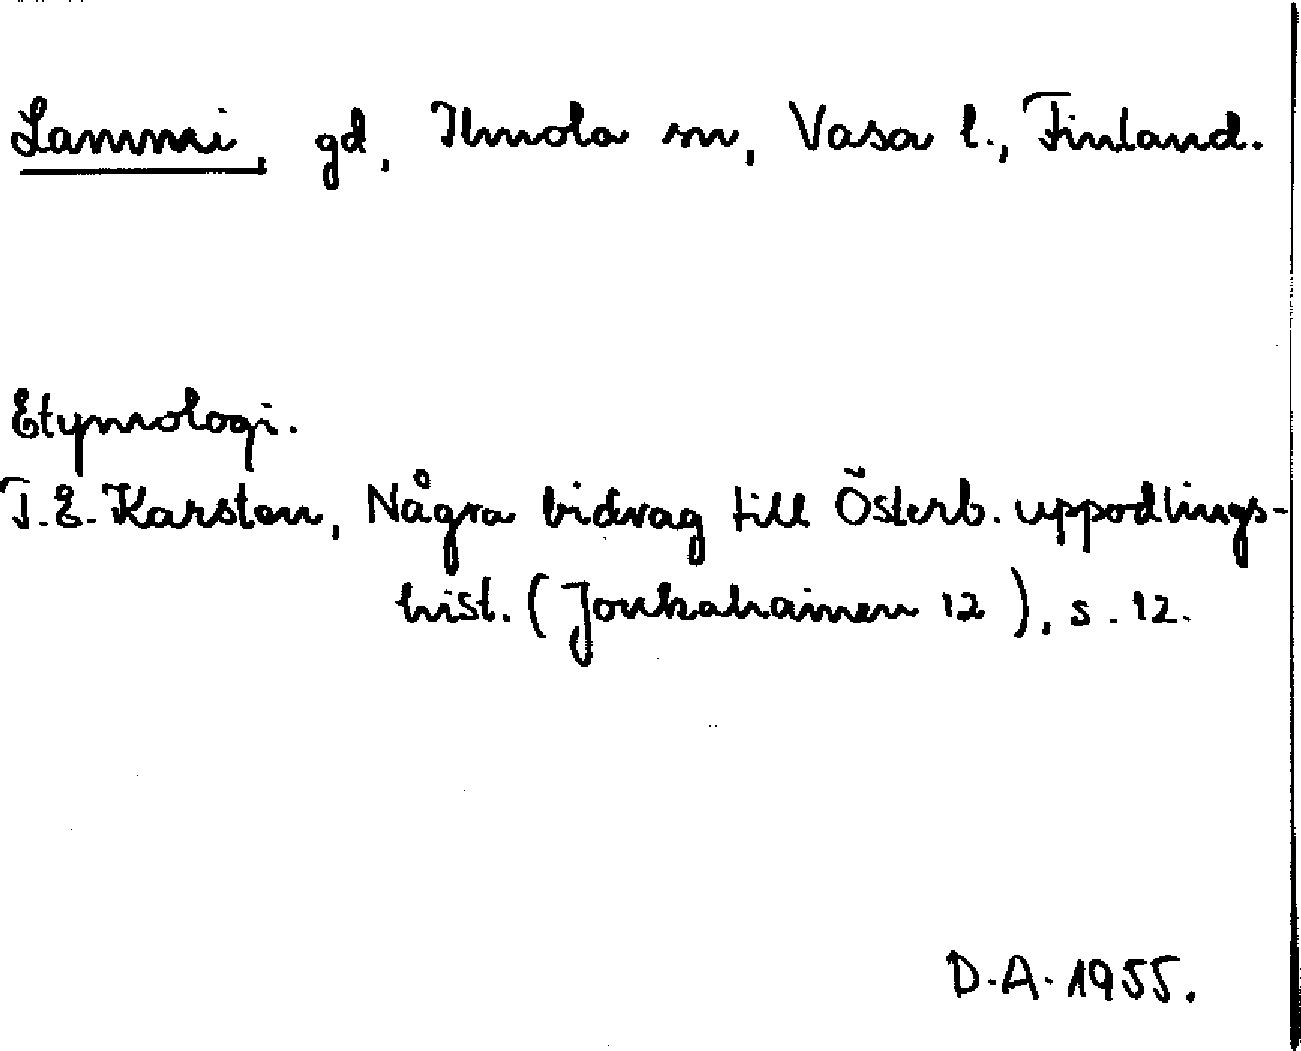 Lammi, gd, Ilmola sn, Vasa l., Finland.
Etymologi.
T.E. Karsten, Några bidrag till Österb. uppodlings-
hist. (Joukahainen 12), s. 12.
D.A. 1955.